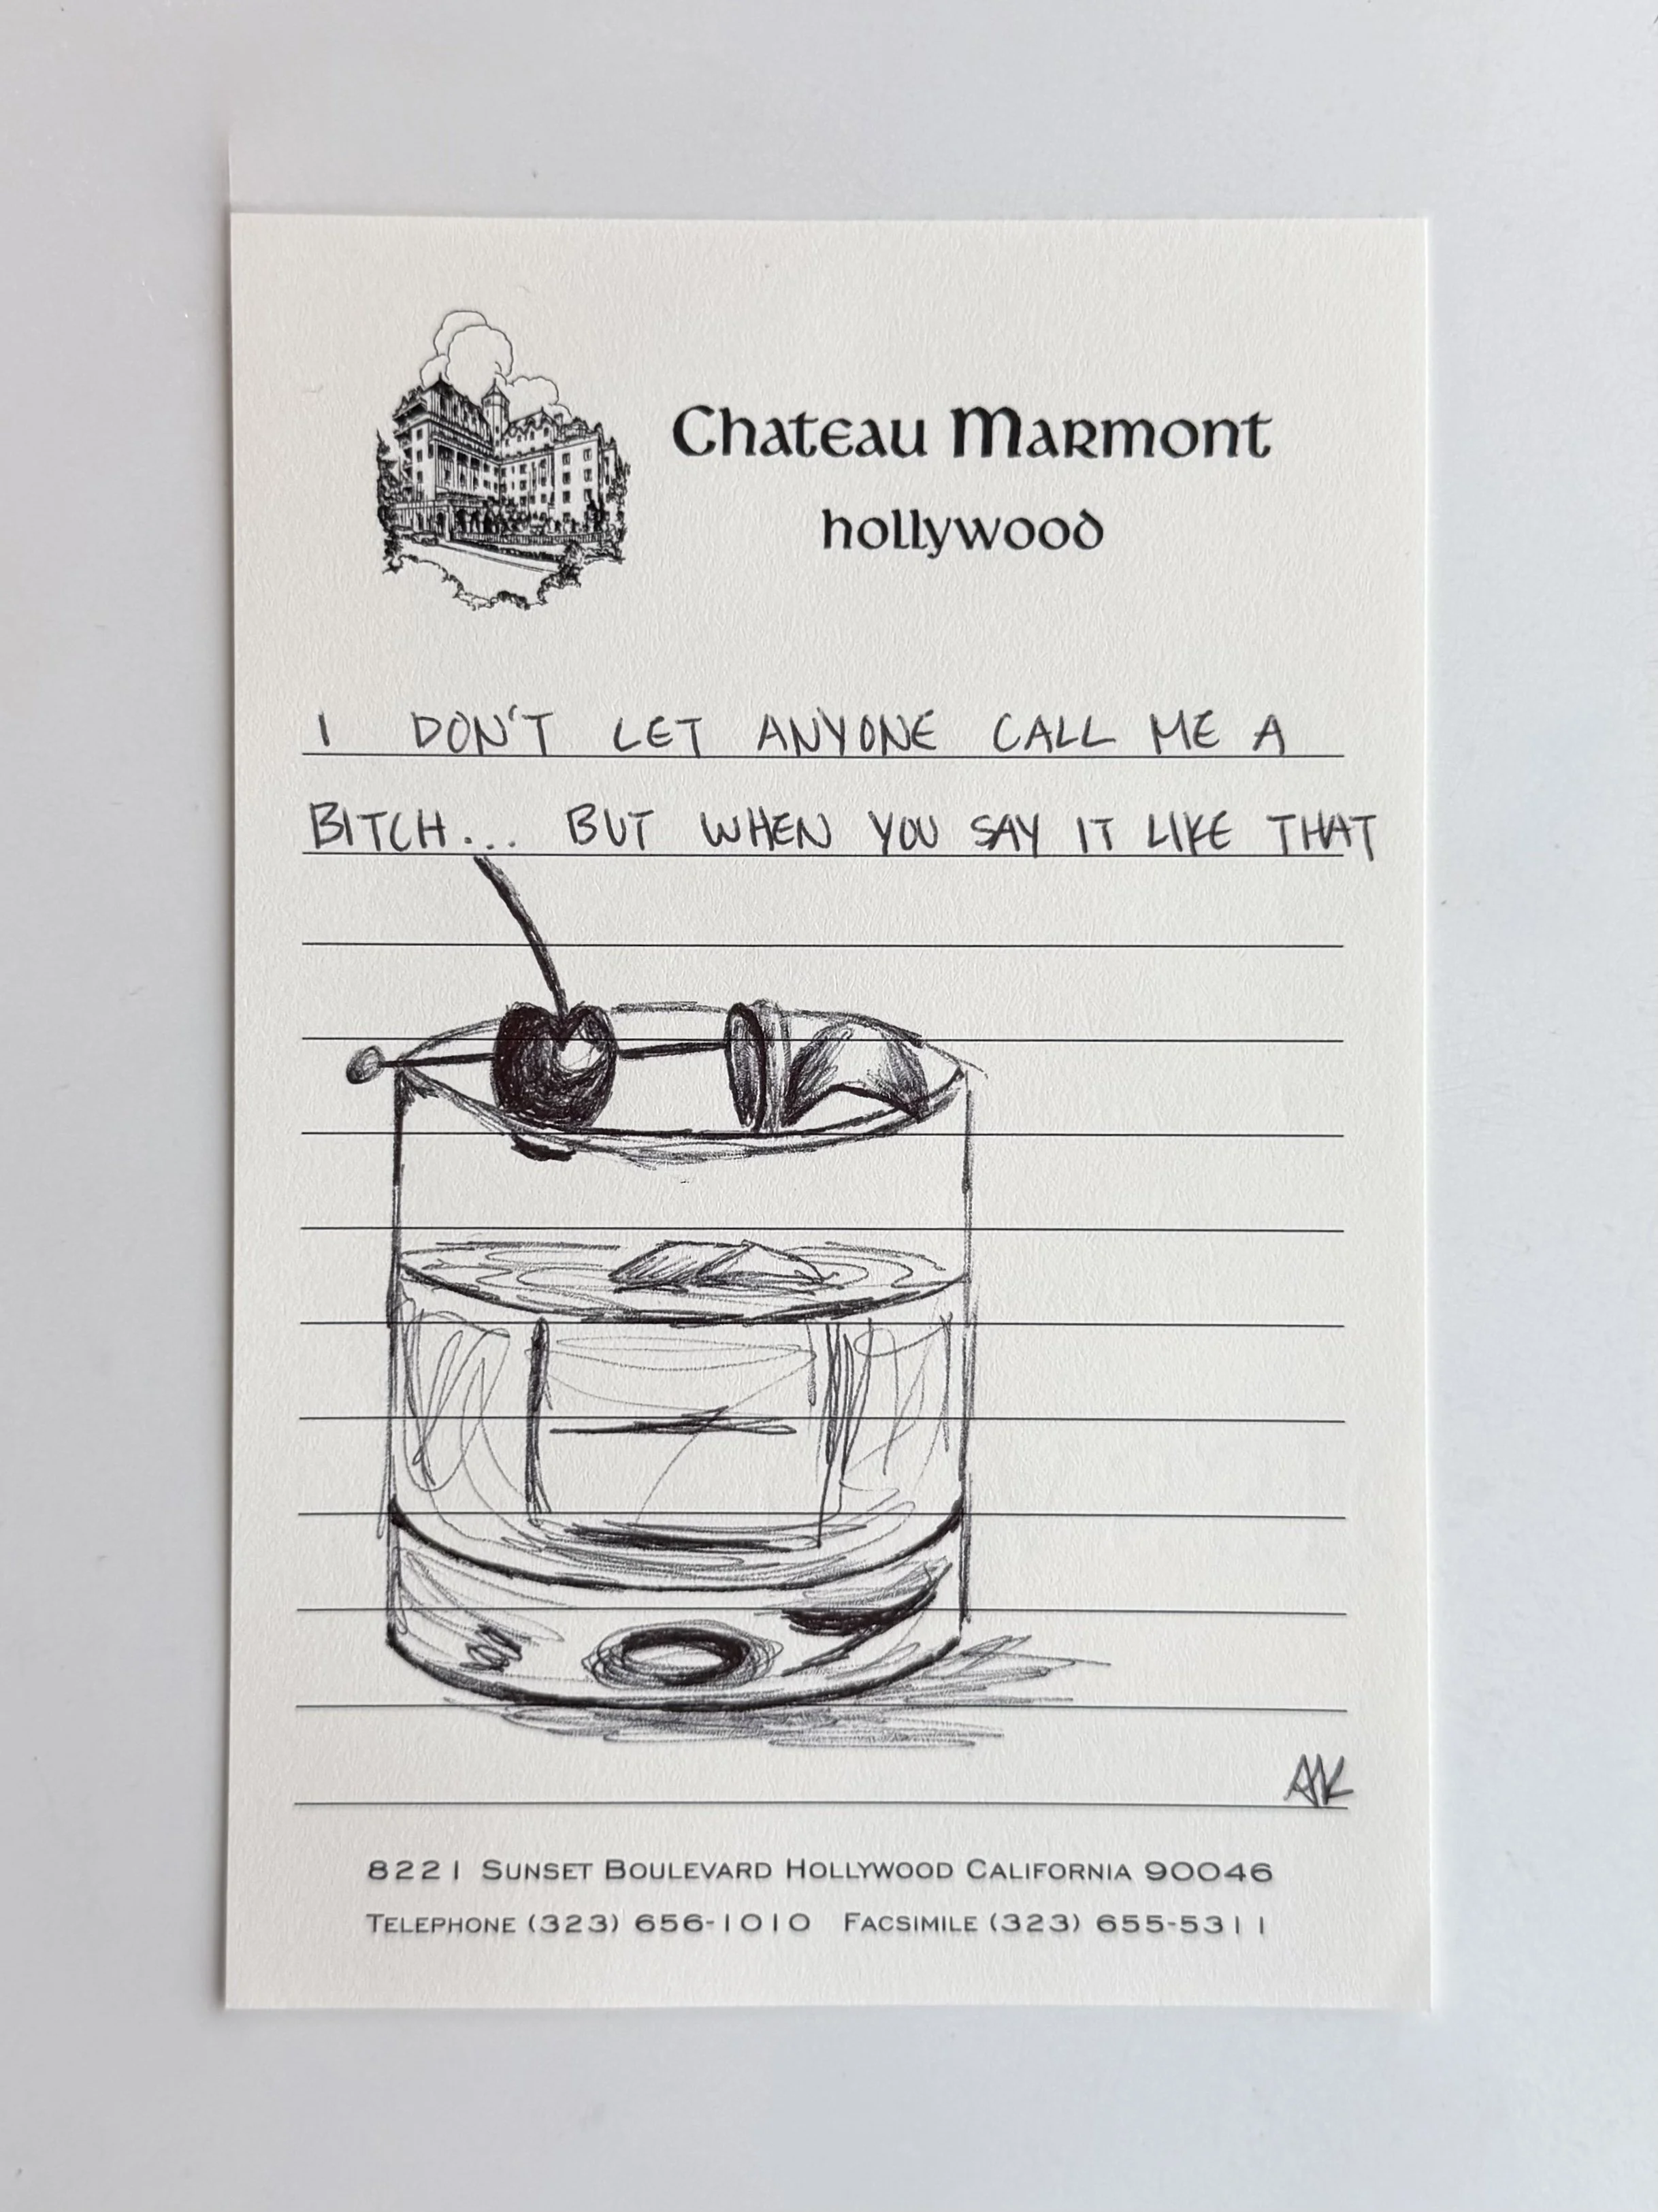 Chateau Marmont
hollywood
I DON'T LET ANYONE CALL ME A
BITCH... BUT WHEN YOU SAY IT LIKE THAT
AJK
8221 SUNSET BOULEVARD HOLLYWOOD CALIFORNIA 90046
TELEPHONE (323) 656-1010 FACSIMILE (323) 655-5311